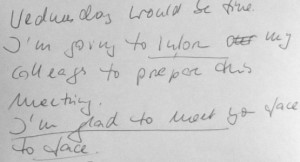 Wednesday would be fine.
I'm going to infor my
colleags to prepare this
meeting.
I'm glad to meet you face
to face.